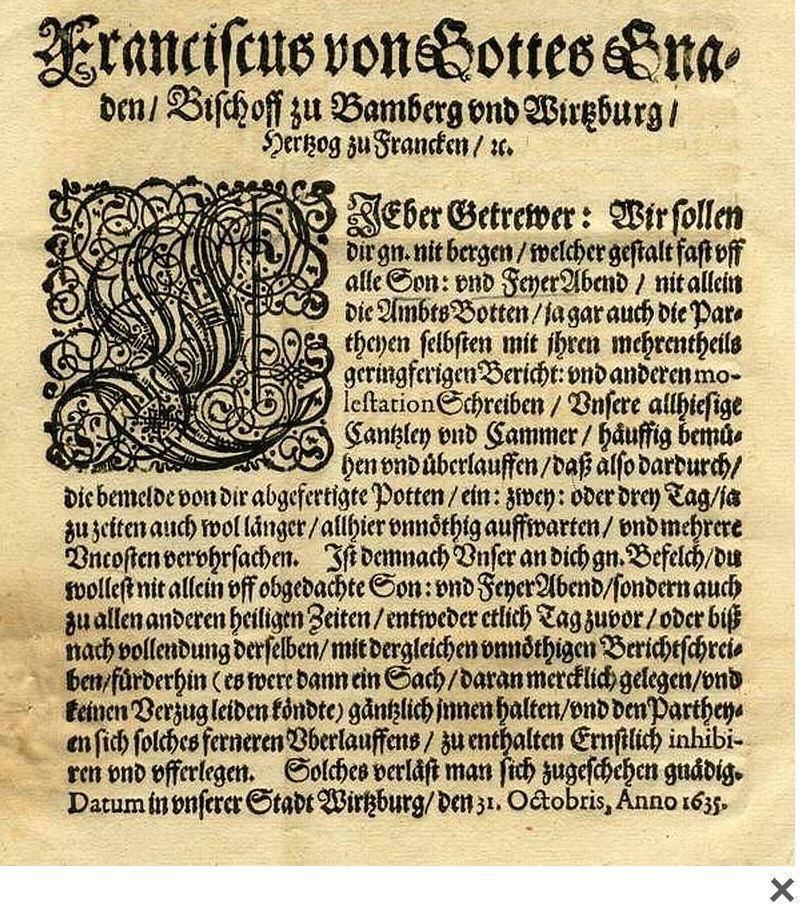 Franciscus von Gottes Gna⸗
den / Bischoff zu Bamberg vnd Wirtzburg /
Hertzog zu Francken / ꝛc.
LIEber Getrewer: Wir sollen
dir gn. nit bergen / welcher gestalt fast vff
alle Son: vnd FeyerAbend / nit allein
die AmbtsBotten / ja gar auch die Par⸗
theyen selbsten mit ihren mehrentheils
geringferigen Bericht: vnd anderen mo-
lestation Schreiben / Vnsere allhiesige
Cantzley vnd Cammer / häuffig bemü⸗
hen vnd überlauffen / daß also dardurch /
die bemelde von dir abgefertigte Potten / ein: zwey: oder drey Tag / ja
zu zeiten auch wol länger / allhier vnnöthig auffwarten / vnd mehrere
Vncosten vervhrsachen. Ist demnach Vnser an dich gn. Befelch / du
wollest nit allein vff obgedachte Son: vnd FeyerAbend / sondern auch
zu allen anderen heiligen Zeiten / entweder etlich Tag zuvor / oder biß
nach vollendung derselben / mit dergleichen vnnöthigen Berichtschrei⸗
ben / fürderhin ( es were dann ein Sach / daran mercklich gelegen / vnd
keinen Verzug leiden köndte) gäntzlich jnnen halten / vnd den Parthey⸗
en sich solches ferneren Vberlauffens / zu enthalten Ernstlich inhibi-
ren vnd vfferlegen. Solches verläst man sich zugeschehen gnädig.
Datum in vnserer Stadt Wirtzburg / den 31. Octobris, Anno 1635.